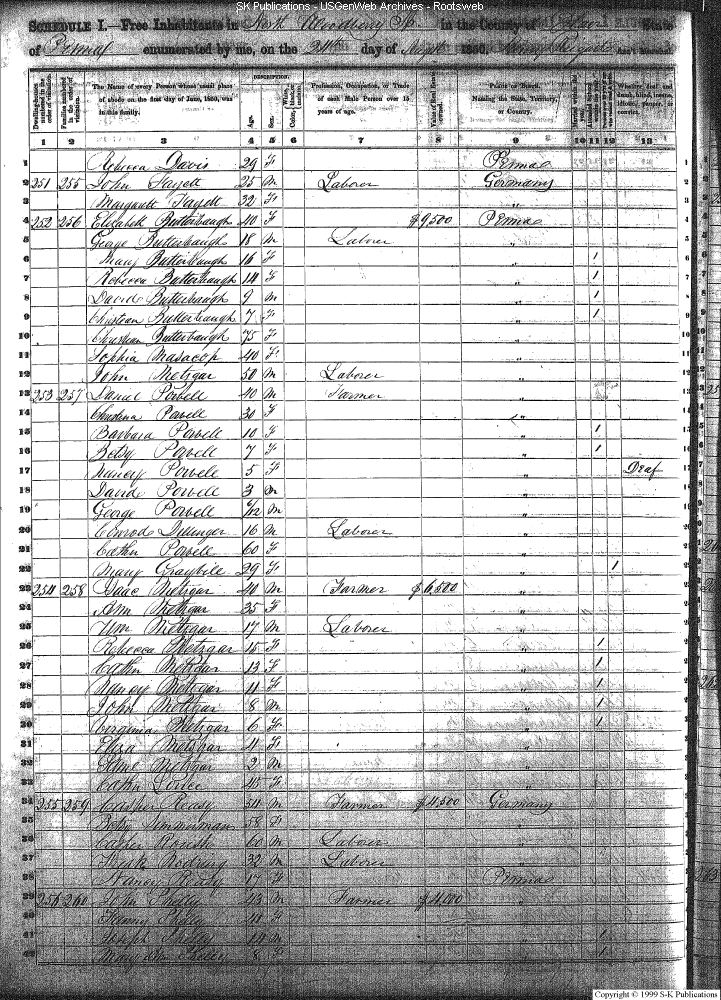 SK Publications - USGenWeb Archives - Rootsweb
SCHEDULE I.- Free Inhabitants in North Woodbury Tp in the County of Blair State
of Penna enumerated by me, on the 24th day of August 1850. Ass't Marshal.
Dwelling-houses numbered in the order of visitation. Families numbered in the order of visitation. The Name of every Person whose usual place of abode on the first day of June, 1850, was in this family. DESCRIPTION. Age. Sex. White, black, or mulatto. Color, Profession, Occupation, or Trade of each Male Person over 15 years of age. Value of Real Estate owned. PLACE OF BIRTH. Naming the State, Territory, or Country. Married within the year. Whether deaf and dumb, blind, insane, idiotic, pauper, or convict.
1 2 3 4 5 6 7 8 9 10 11 12 13
1 Rebecca Davis 29 F Penna
2 251 255 John 25 M Laborer Germany
3 Margarett 22 F "
4 252 256 Elizabeth Butterbaugh 40 F $9,500 Penna
5 George Butterbaugh 18 M Laborer "
6 Mary Butterbaugh 16 F " 1
7 Rebecca Butterbaugh 14 F " 1
8 David Butterbaugh 9 M " 1
9 Christian Butterbaugh 7 F " 1
10 Christian Butterbaugh 75 F "
11 Sophia 40 F "
12 John Metzgar 50 M Laborer "
13 253 257 Daniel Powell 40 M Farmer "
14 Christina Powell 30 F "
15 Barbara Powell 10 F " 1
16 Betsy Powell 7 F " 1
17 Nancy Powell 5 F " Deaf
18 David Powell 3 M "
19 George Powell /12 M "
20 Conrod Dillinger 16 M Laborer "
21 Cathn Powell 60 F "
22 Mary Graybile 29 F " 1
23 254 258 Isaac Metzgar 40 M Farmer $6,500 "
24 Ann Metzgar 35 F "
25 Wm Metzgar 17 M Laborer "
26 Rebecca Metzgar 15 F " 1
27 Cathn Metzgar 13 F " 1
28 Nancy Metzgar 11 F " 1
29 John Metzgar 8 M " 1
30 Virginia Metzgar 6 F " 1
31 Eliza Metzgar 4 F "
32 Metzgar 2 M "
33 Cathn 45 F "
34 255 259 Casper 34 M Farmer $4,500 Germany
35 Betsy Zimmerman 58 F "
36 60 M Laborer "
37 32 M Laborer "
38 Nancy 17 F Penna
39 256 260 John Shelly 43 M Farmer $4,000 "
40 Fanny Shelly 41 F "
41 Joseph Shelly 14 M " 1
42 Mary Ann Shelly 8 F " 1
Copyright © 1999 S-K Publications